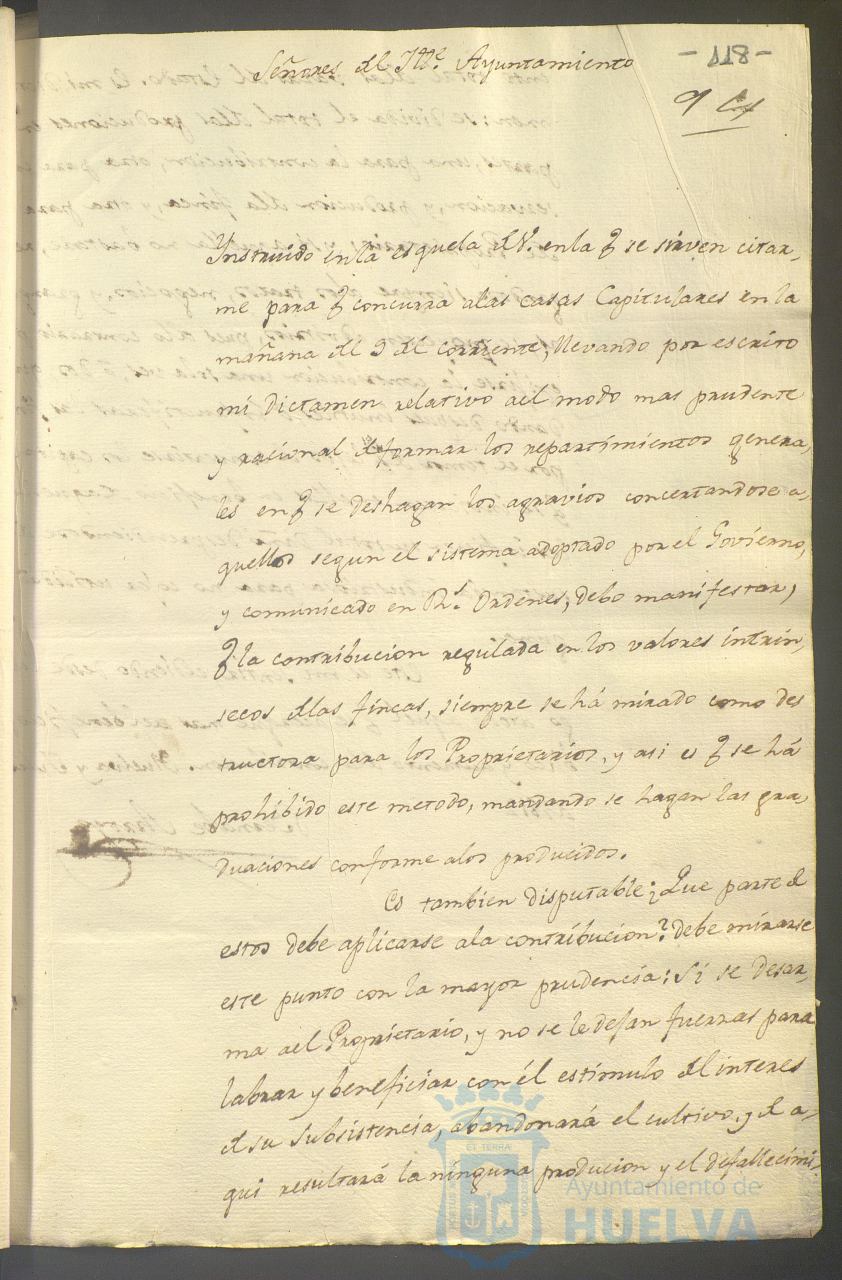 - 118 -
Señores del Ille. Ayuntamiento
Ynstruido en la esquela d V. en la q se sirven citar,
me para q concurra alas casas Capitulares en la
mañana del 9 del corriente, llevando por escrito
mi dictamen relativo ael modo mas prudente
y racional d formar los repartimientos genera,
les en q se deshagan los agravios concertandose a,
quellos segun el sistema adoptado por el Govierno,
y comunicado en Rs. Ordenes, debo manifestar,
q la contribucion regulada en los valores intrin,
secos dlas fincas, siempre se há mirado como des
tructora para los Proprietarios, y asi es q se há
prohibido este metodo, mandando se hagan las gra,
duaciones conforme alos producidos.
Es tambien disputable ¿Que parte d
estos debe aplicarse ala contribucion? debe mirarse
este punto con la mayor prudencia: Si se desar,
ma ael Proprietario, y no se le dejan fuerzas para
labrar y beneficiar con él estímulo del interes
d su subsistencia, abandonará el cultivo, y d a,
qui resultará la ninguna producion y el desfallecimi,
ET TERRA
Ayuntamiento de
HUELVA